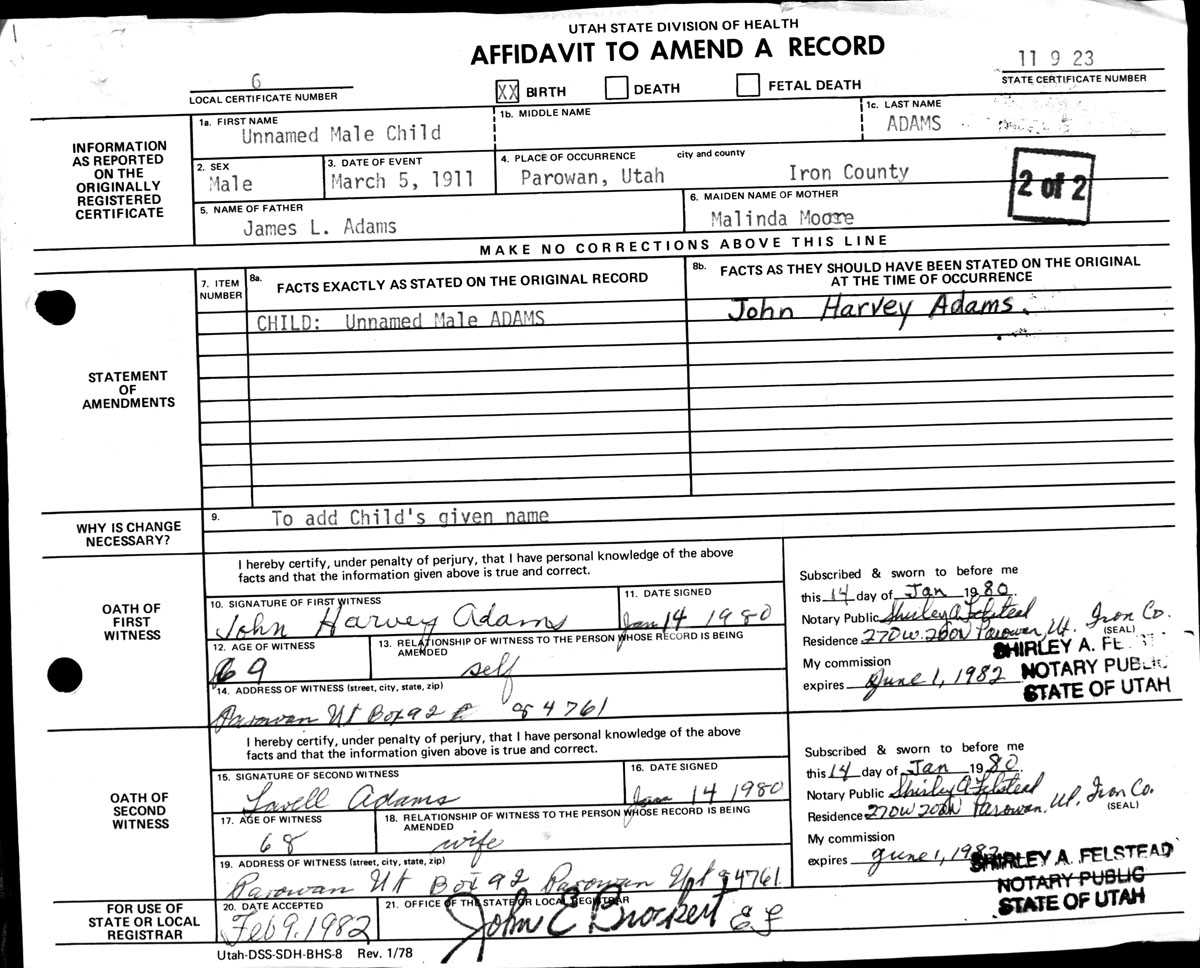 UTAH STATE DIVISION OF HEALTH
AFFIDAVIT TO AMEND A RECORD
6
LOCAL CERTIFICATE NUMBER
XX BIRTH DEATH FETAL DEATH
11 9 23
STATE CERTIFICATE NUMBER
INFORMATION
AS REPORTED
ON THE
ORIGINALLY
REGISTERED
CERTIFICATE
1a. FIRST NAME
Unnamed Male Child
1b. MIDDLE NAME
1c. LAST NAME
ADAMS
2. SEX
Male
3. DATE OF EVENT
March 5, 1911
4. PLACE OF OCCURRENCE city and county
Parowan, Utah Iron County
2 of 2
5. NAME OF FATHER
James L. Adams
6. MAIDEN NAME OF MOTHER
Malinda Moore
MAKE NO CORRECTIONS ABOVE THIS LINE
STATEMENT
OF
AMENDMENTS
7. ITEM
NUMBER
8a. FACTS EXACTLY AS STATED ON THE ORIGINAL RECORD
8b. FACTS AS THEY SHOULD HAVE BEEN STATED ON THE ORIGINAL
AT THE TIME OF OCCURRENCE
CHILD: Unnamed Male ADAMS
John Harvey Adams.
WHY IS CHANGE
NECESSARY?
9. To add Child's given name
OATH OF
FIRST
WITNESS
I hereby certify, under penalty of perjury, that I have personal knowledge of the above
facts and that the information given above is true and correct.
10. SIGNATURE OF FIRST WITNESS
John Harvey Adams
11. DATE SIGNED
Jan 14 1980
12. AGE OF WITNESS
69
13. RELATIONSHIP OF WITNESS TO THE PERSON WHOSE RECORD IS BEING
AMENDED
self
14. ADDRESS OF WITNESS (street, city, state, zip)
Parowan Ut Box 92 84761
Subscribed & sworn to before me
this 14 day of Jan 1980
Notary Public Shirley A Felstead
Residence 270 W. 200 N Parowan, Ut. Iron Co.
(SEAL)
My commission
expires June 1, 1982
SHIRLEY A. FE
NOTARY PUBLIC
STATE OF UTAH
OATH OF
SECOND
WITNESS
I hereby certify, under penalty of perjury, that I have personal knowledge of the above
facts and that the information given above is true and correct.
15. SIGNATURE OF SECOND WITNESS
Lavell Adams
16. DATE SIGNED
Jan 14 1980
17. AGE OF WITNESS
68
18. RELATIONSHIP OF WITNESS TO THE PERSON WHOSE RECORD IS BEING
AMENDED
wife
19. ADDRESS OF WITNESS (street, city, state, zip)
Parowan Ut Box 92 Parowan 84761
Subscribed & sworn to before me
this 14 day of Jan 1980
Notary Public Shirley A Felstead
Residence 270 W 200 N Parowan, Ut. Iron Co.
(SEAL)
My commission
expires June 1, 1982
SHIRLEY A. FELSTEAD
NOTARY PUBLIC
STATE OF UTAH
FOR USE OF
STATE OR LOCAL
REGISTRAR
20. DATE ACCEPTED
Feb 9, 1982
21. OFFICE OF THE STATE OR LOCAL REGISTRAR
John E Brockert
Utah-DSS-SDH-BHS-8 Rev. 1/78